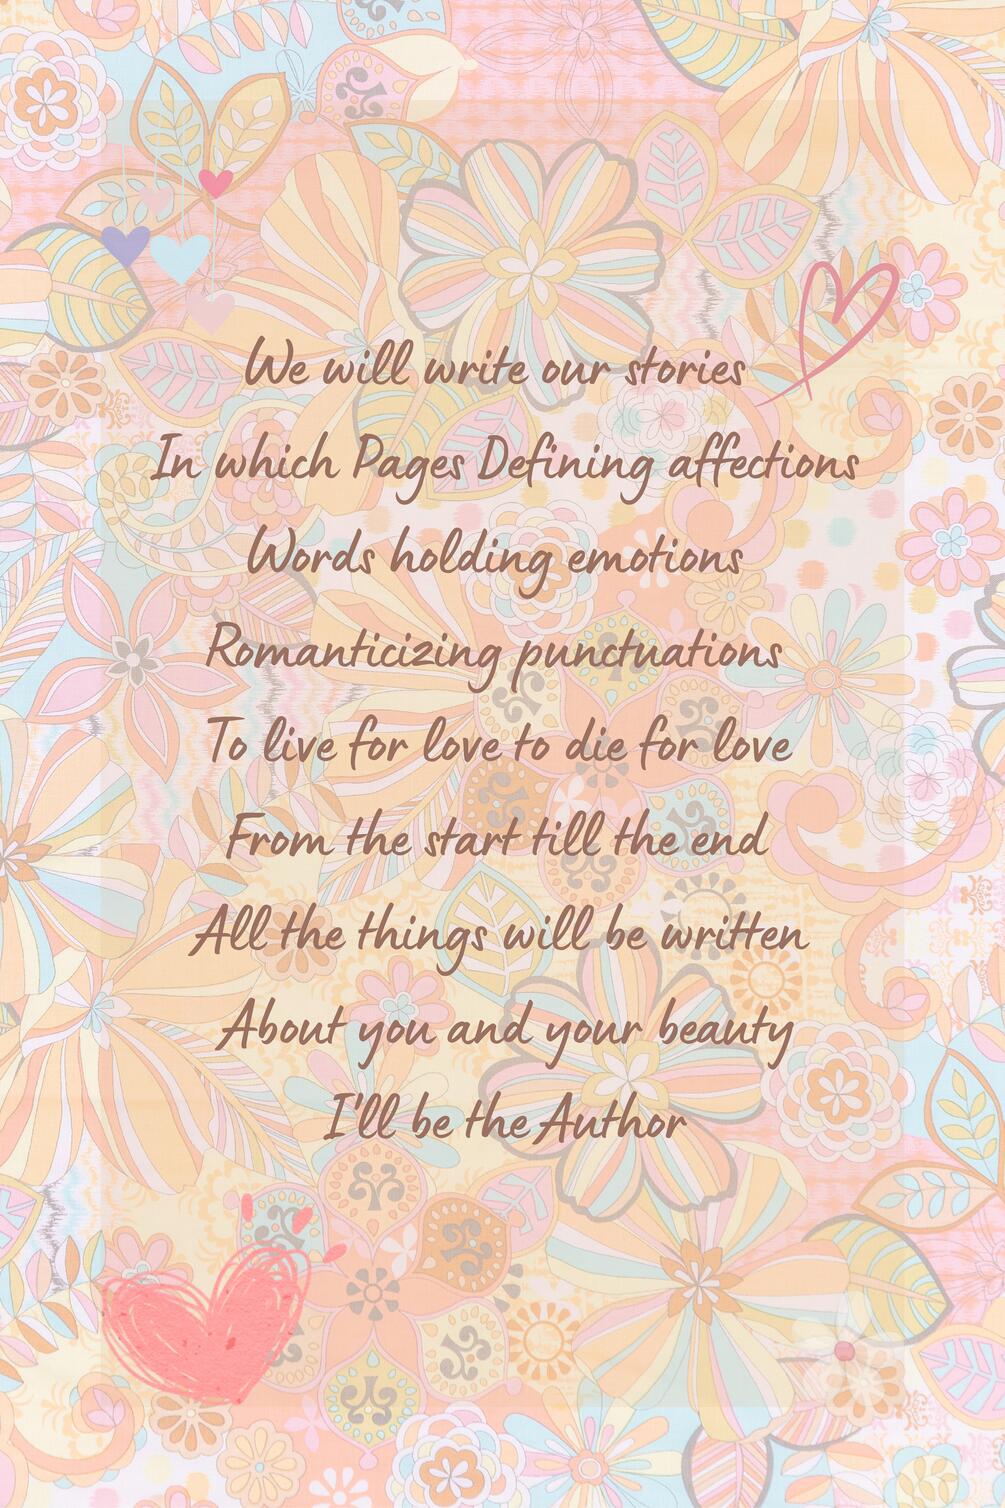 We will write our stories
In which Pages Defining affections
Words holding emotions
Romanticizing punctuations
To live for love to die for love
From the start till the end
All the things will be written
About you and your beauty
I'll be the Author